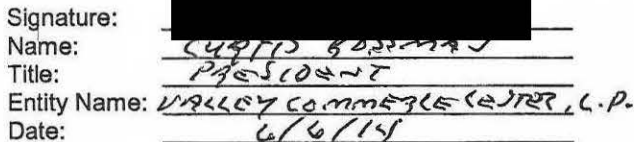 Signature:
Name: CURTIS
Title: PRESIDENT
Entity Name: VALLEY COMMERCE CENTER, L.P.
Date: 6/6/14